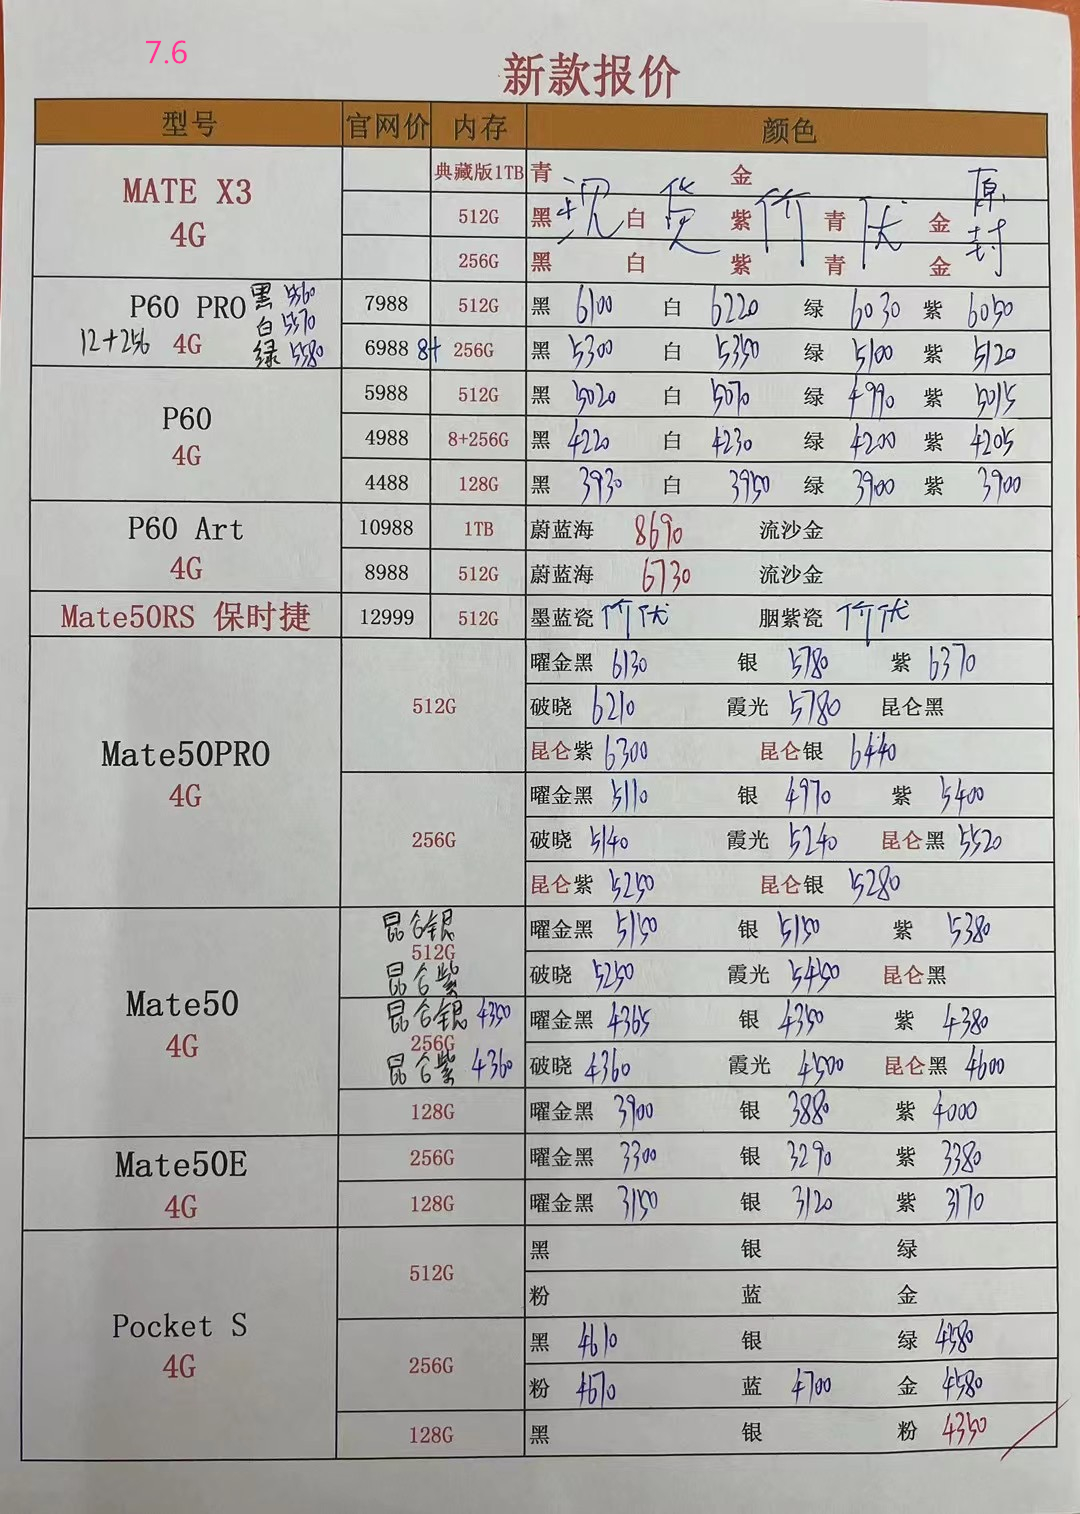 7.6
新款报价
型号 官网价 内存 颜色
MATE X3 4G
典藏版1TB 青 金
512G 黑 白 紫 青 金
现货 原封
256G 黑 白 紫 青 金
P60 PRO 4G
黑 5560
白 5570
绿 5580
12+256
7988 512G 黑 6100 白 6220 绿 6030 紫 6050
6988 8+ 256G 黑 5300 白 5350 绿 5100 紫 5120
P60 4G
5988 512G 黑 5020 白 5070 绿 4990 紫 5015
4988 8+256G 黑 4220 白 4230 绿 4200 紫 4205
4488 128G 黑 3930 白 3950 绿 3900 紫 3900
P60 Art 4G
10988 1TB 蔚蓝海 8690 流沙金
8988 512G 蔚蓝海 6730 流沙金
Mate50RS 保时捷 12999 512G 墨蓝瓷 胭紫瓷
Mate50PRO 4G
512G 曜金黑 6130 银 5780 紫 6370
破晓 6210 霞光 5780 昆仑黑
昆仑紫 6300 昆仑银 6440
256G 曜金黑 5110 银 4970 紫 5400
破晓 5140 霞光 5240 昆仑黑 5520
昆仑紫 5250 昆仑银 5280
Mate50 4G
昆仑银
512G
昆仑紫
曜金黑 5150 银 5150 紫 5380
破晓 5250 霞光 5450 昆仑黑
昆仑银 4350
256G
昆仑紫 4360
曜金黑 4365 银 4350 紫 4380
破晓 4360 霞光 4500 昆仑黑 4600
128G 曜金黑 3900 银 3880 紫 4000
Mate50E 4G
256G 曜金黑 3300 银 3290 紫 3380
128G 曜金黑 3150 银 3120 紫 3170
Pocket S 4G
512G 黑 银 绿
粉 蓝 金
256G 黑 4610 银 绿 4580
粉 4670 蓝 4700 金 4580
128G 黑 银 粉 4350